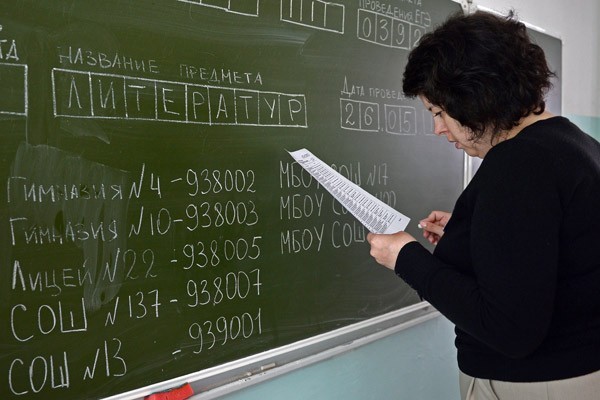 ПРОВЕДЕНИЯ ЕГЭ
039
НАЗВАНИЕ ПРЕДМЕТА
ЛИТЕРАТУР
ДАТА ПРОВЕД
26 05
ГИМНАЗИЯ №4 - 938002
ГИМНАЗИЯ №10 - 938003
ЛИЦЕЙ №22 - 938005
СОШ №137 - 938007
СОШ №13 - 939001
МБОУ СОШ №17
МБОУ СОШ
МБОУ СОШ